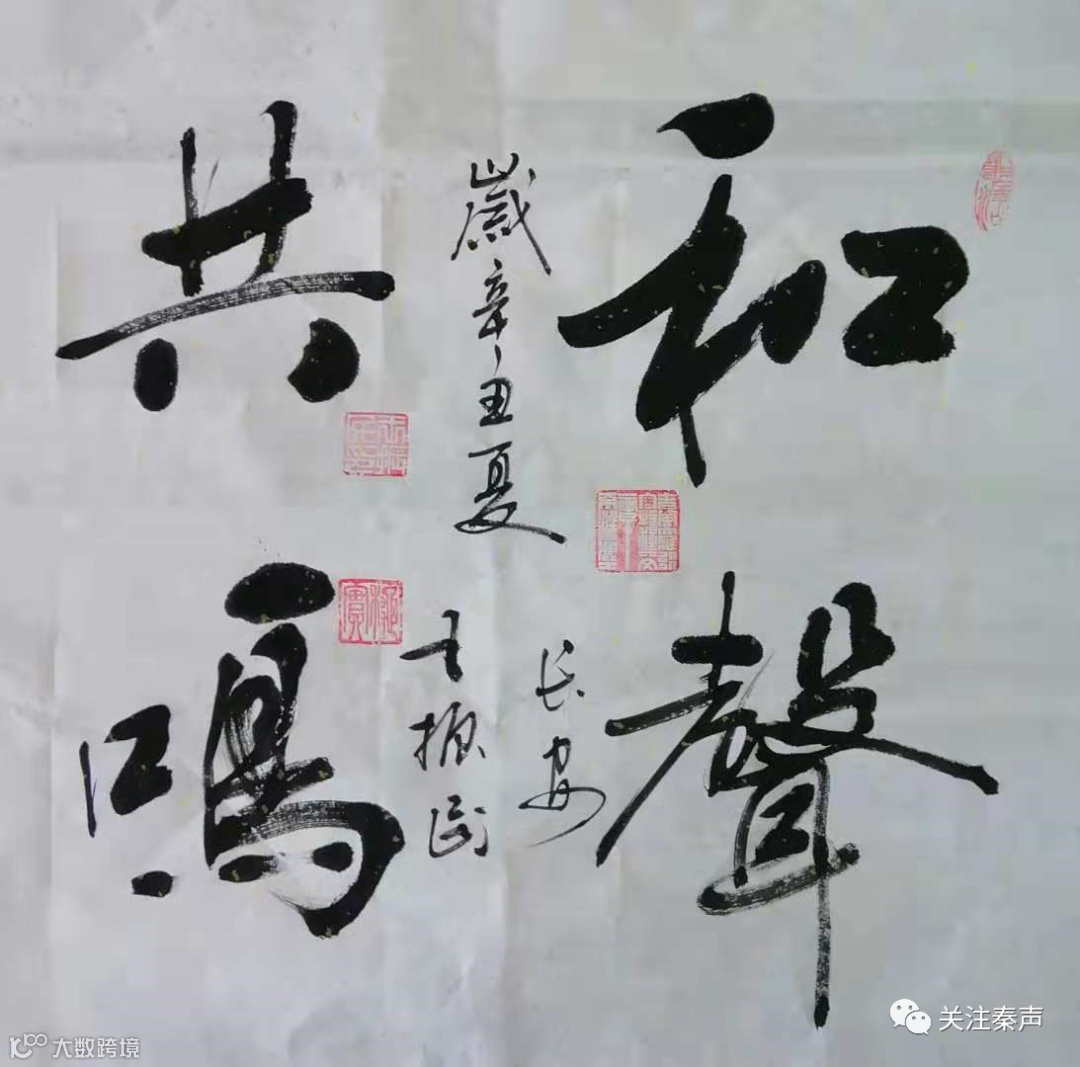 和聲
共鳴
歲辛丑夏
长安
振
关注秦声
大数跨境